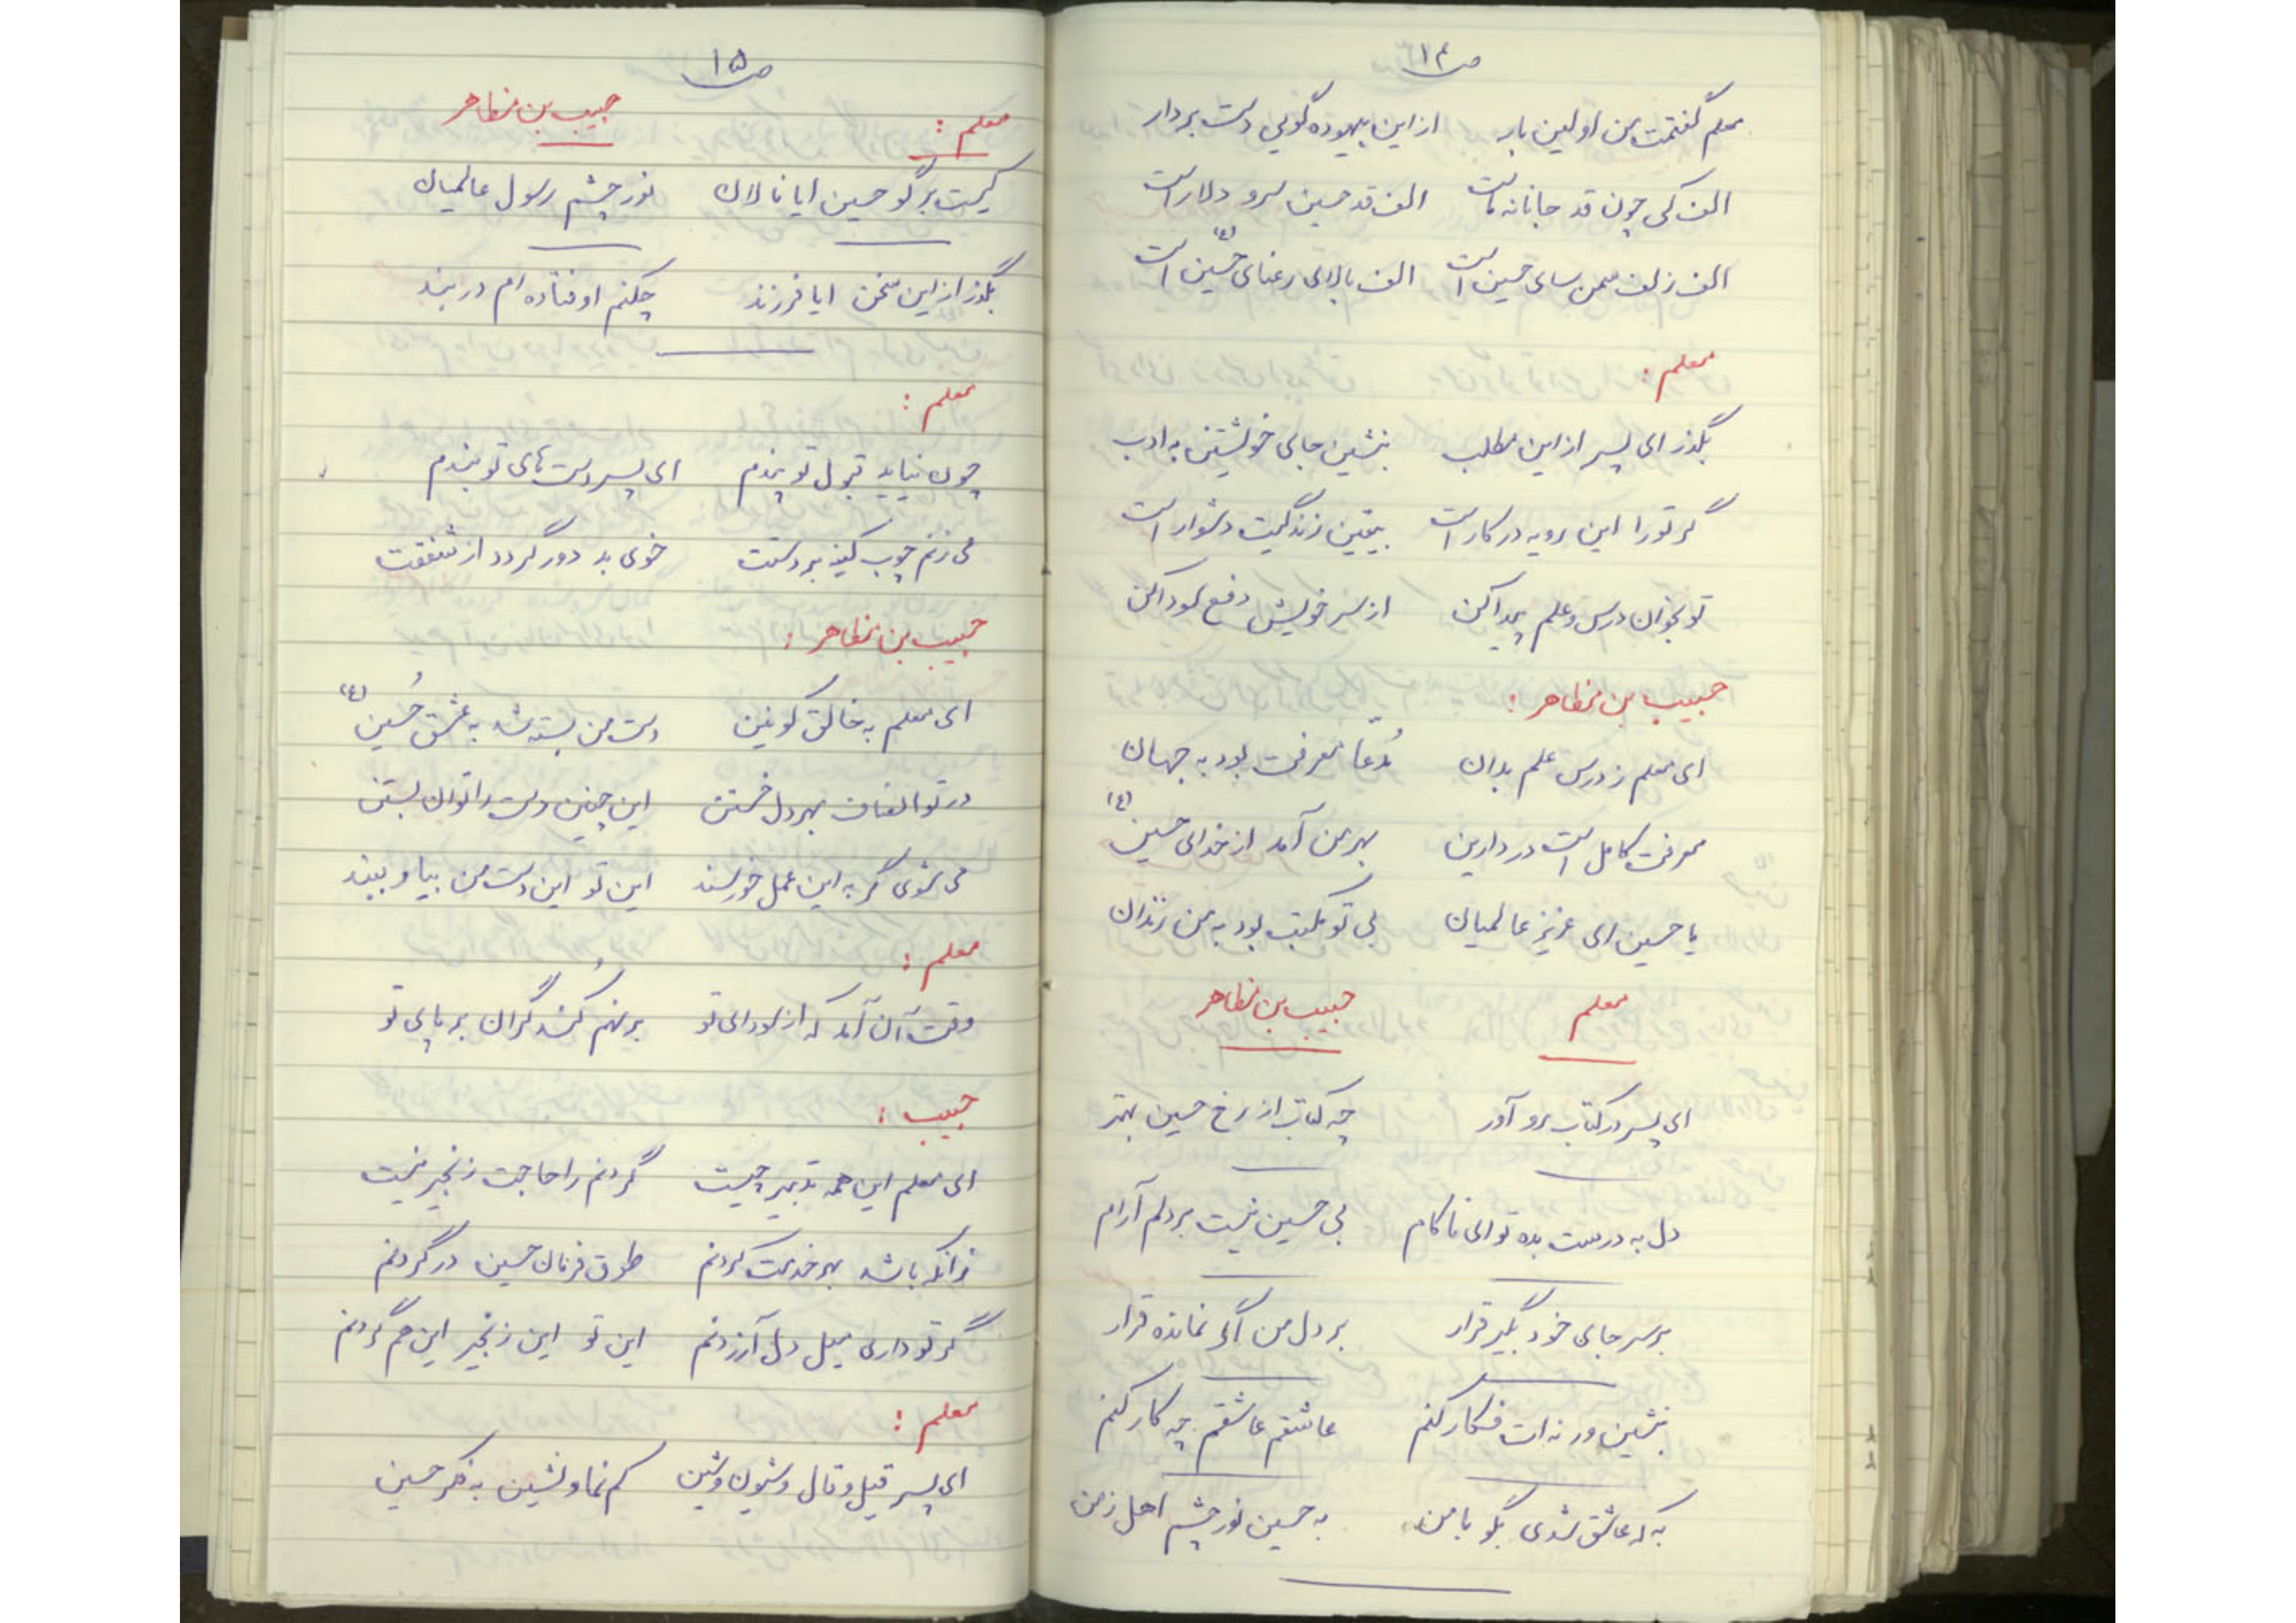 ص۱۴
معلم گفتمت من اولین بار    از این بیهوده گویی دست بردار
الف کی چون قد جانانه ماست    الف قد حسین سرو دلاراست
الف زلف سمن سای حسین است    الف بالای رعنای حسین (ع) است
معلم :
بگذر ای پسر از این مطلب    بنشین جای خویشتن به ادب
گر تو را این رویه در کار است    بیقین زندگیت دشوار است
تو بخوان درس و علم پیدا کن    از سر خویش دفع سودا کن
حبیب بن مظاهر :
ای معلم ز درس علم بدان    مُدعّا معرفت بود به جهان
معرفت کامل است در دارین    بهر من آمد از خدای حسین (ع)
یا حسین ای عزیز عالمیان    بی تو مکتب بود به من زندان
معلم    حبیب بن مظاهر
ای پسر در کتاب رو آور    چه کتاب از رخ حسین بهتر
دل به درست بده تو ای ناکام    بی حسین نیست بر دلم آرام
بر سر جای خود بگیر قرار    بر دل من آگی نمانده قرار
بنشین ورنه ات فکار کنم    عاشقم عاشقم چه کار کنم
به که عاشق شدی بگو با من    به حسین نور چشم اهل زمن
ص۱۵
معلم :    حبیب بن مظاهر
کیست برگو حسین ایا نالان    نور چشم رسول عالمیان
بگذر از این سخن ایا فرزند    چکنم اوفتاده ام در بند
معلم :
چون نیاید قبول تو پندم    ای پسر دست های تو بندم
می زنم چوب کینه بر دستت    خوی بد دور گردد از شفقت
حبیب بن مظاهر :
ای معلم به خالق کونین    دست من بسته شد به عشق حُسین (ع)
در تو انصاف بهر دل خستن    این چنین دست را توان بستن
می شوی گر به این عمل خورسند    این تو این دست من بیا و ببند
معلم :
وقت آن آمد که از سودای تو    بر نهم کُند گران بر پای تو
حبیب :
ای معلم این همه تدبیر چیست    گردنم را حاجت زنجیر نیست
زانکه باشد بهر خدمت کردنم    طوق فرمان حسین در گردنم
گر تو داری میل دل آزردنم    این تو این زنجیر این هم گردنم
معلم :
ای پسر قیل و قال و شیون و شین    کم نما و نشین به ذکر حسین